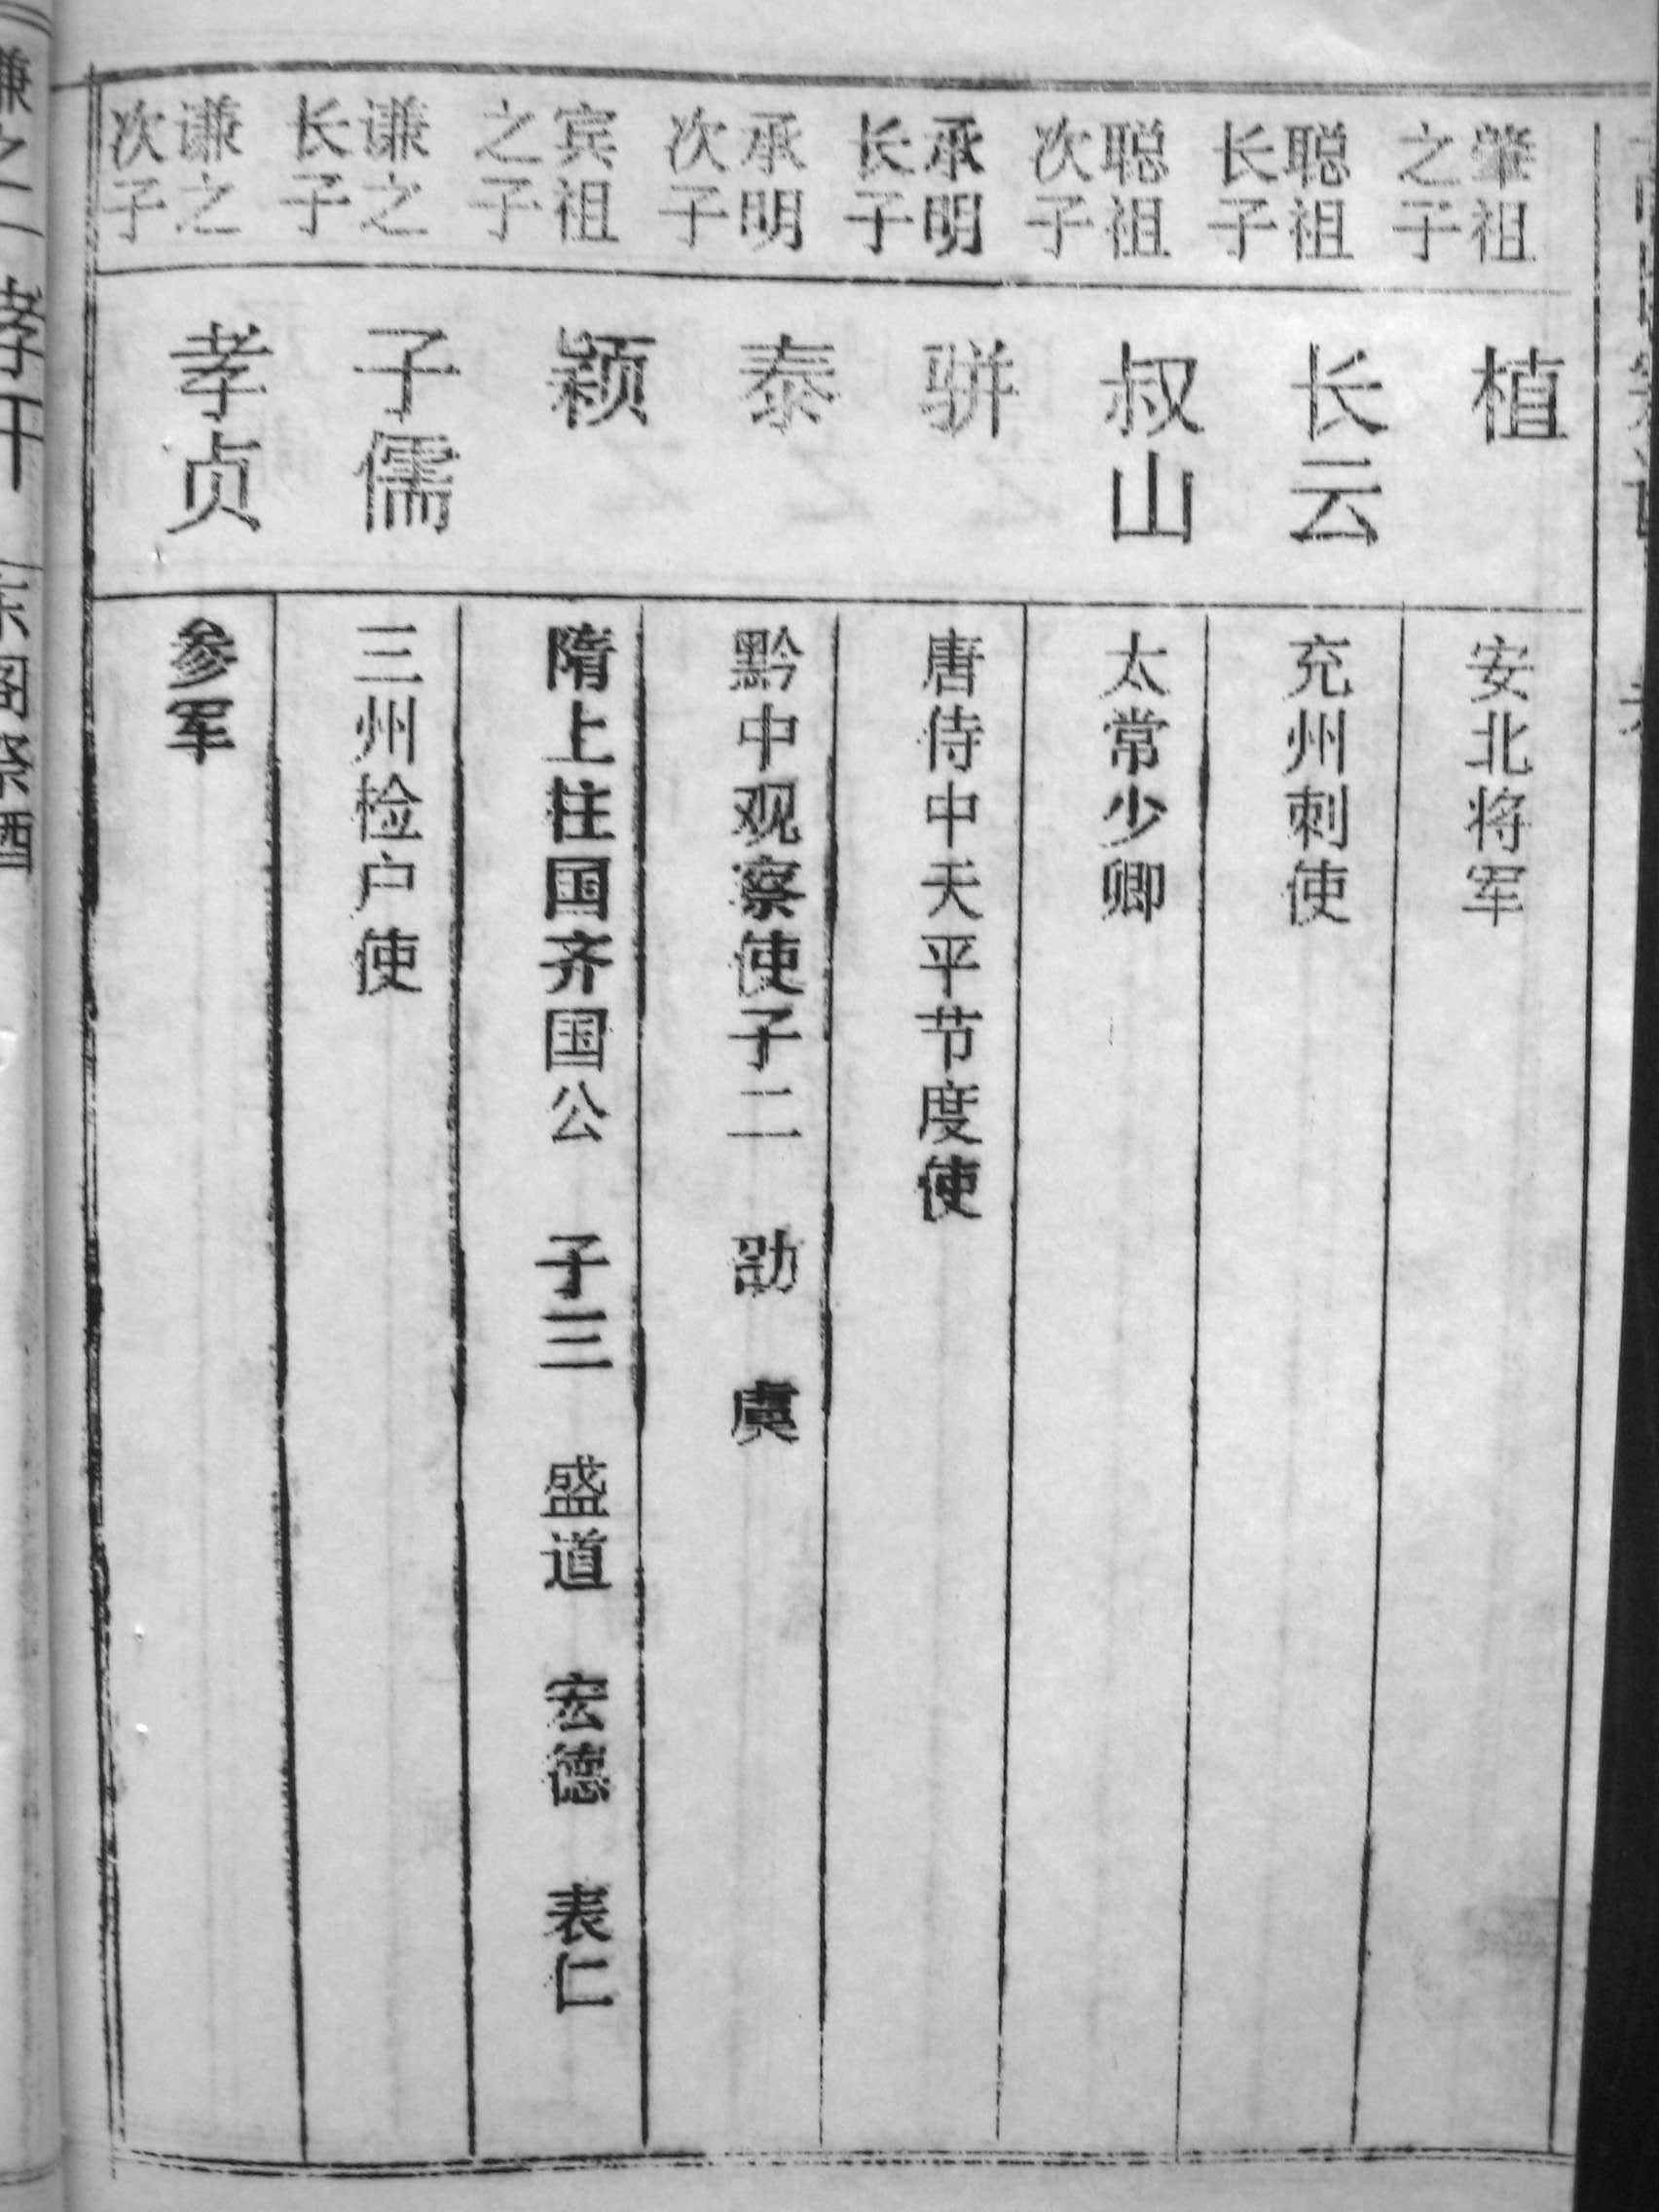 肇祖之子
植
安北将军
聪祖长子
长云
充州刺使
聪祖次子
叔山
太常少卿
承明长子
骈
唐侍中天平节度使
承明次子
泰
黔中观察使子二 劭 虞
宾祖之子
颖
隋上柱国齐国公 子三 盛道 宏德 表仁
谦之长子
子儒
三州检户使
谦之次子
孝贞
参军
谦之